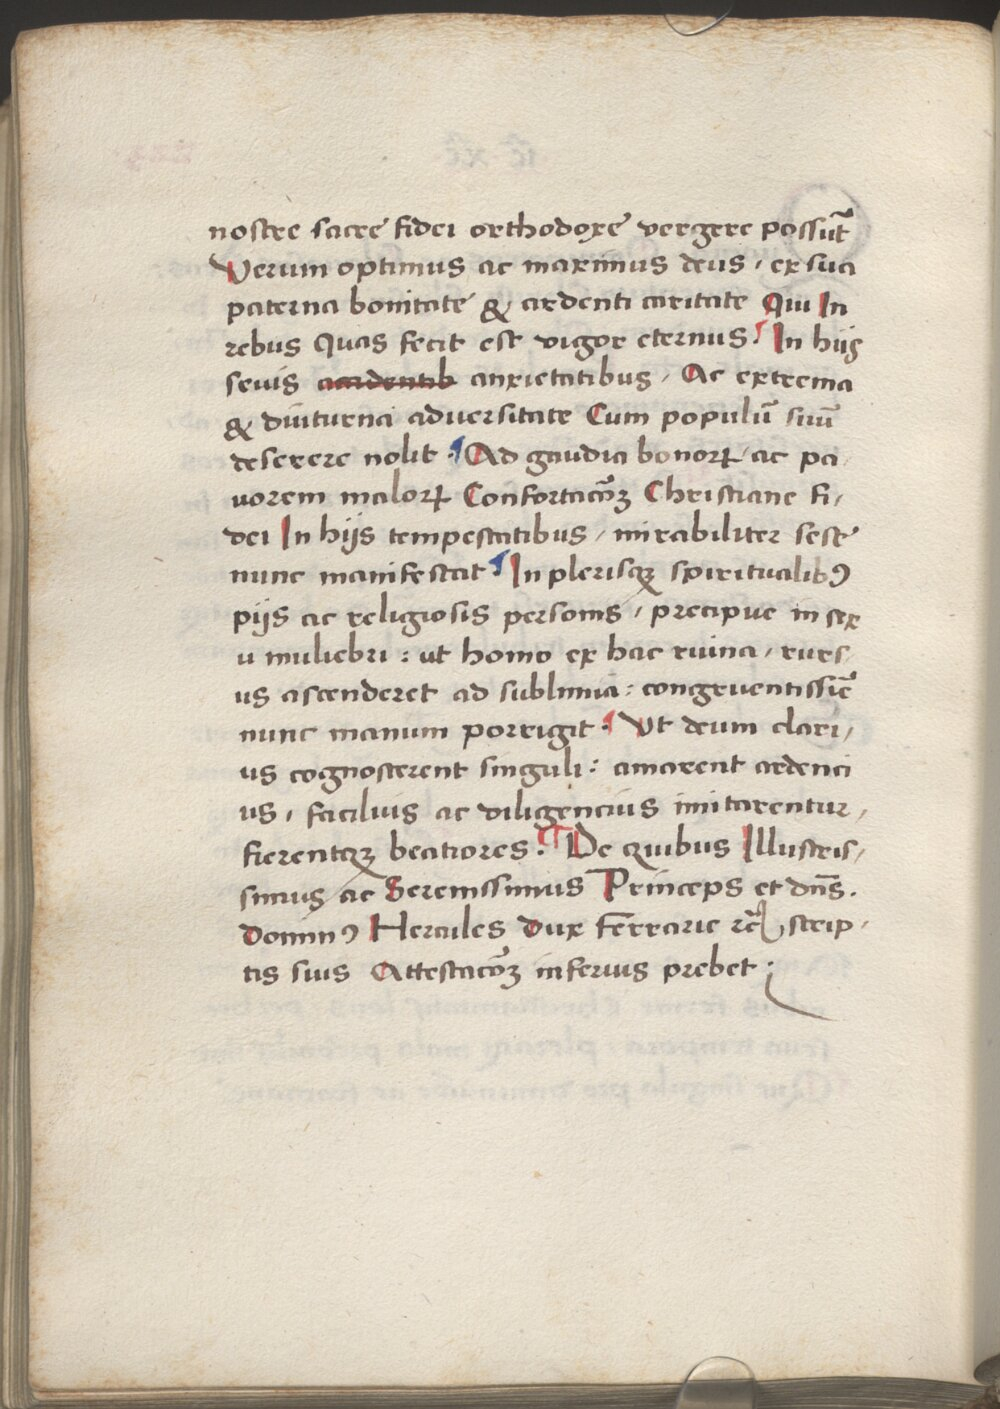 nostre sacre fidei orthodoxe vergere possūt
Verum optimus ac maximus deus, ex sua
paterna bonitate & ardenti caritate Qui In
rebus Quas fecit est vigor eternus. In hijs
sevis anxietatibus, Ac extrema
& diuturna adversitate Cum populū suū
deserere nolit. Ad gaudia bonoꝝ ac pa,
uorem maloꝝ Confortacōꝫ Christiane fi,
dei In hijs tempestatibus, mirabiliter sese
nunc manifestat. In plerisqꝫ spiritualibꝰ
pijs ac religiosis personis, precipue in sex
u muliebri: ut homo ex hac ruina, rurs,
us ascenderet ad sublimia: congruentissīe
nunc manum porrigit. Vt deum clari,
us cognoscerent singuli: amarent ardenci
us, facilius ac diligencius imitarentur,
fierentqꝫ beatiores. De quibus Illustris,
simus ac Serenissimus Princeps et dn̄s.
Dominꝰ Hercules Dux Ferrarie rc̄ scrip,
tis suis Attestacōꝫ inferius prebet: